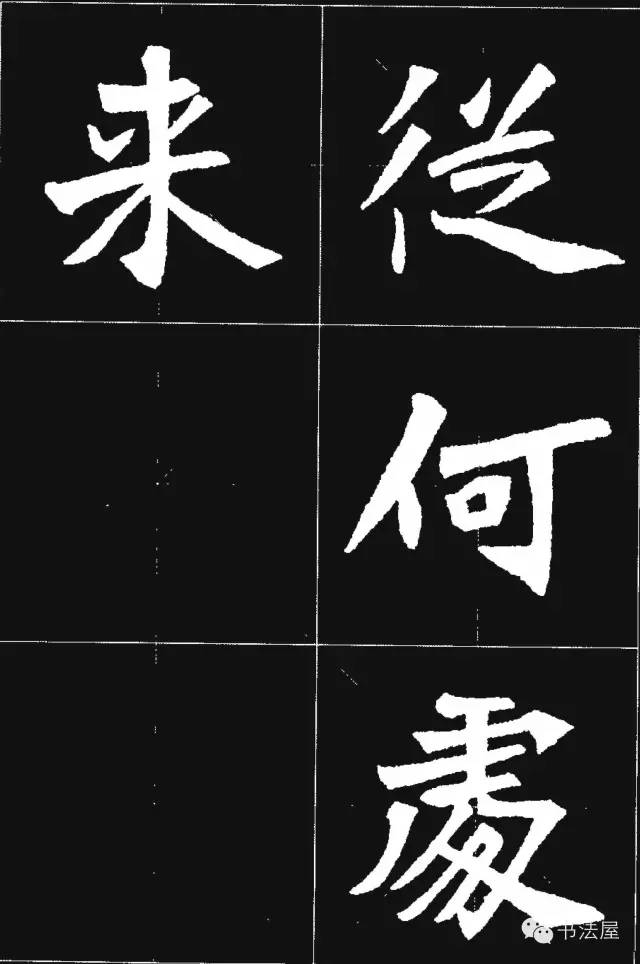 從何處
来
书法屋